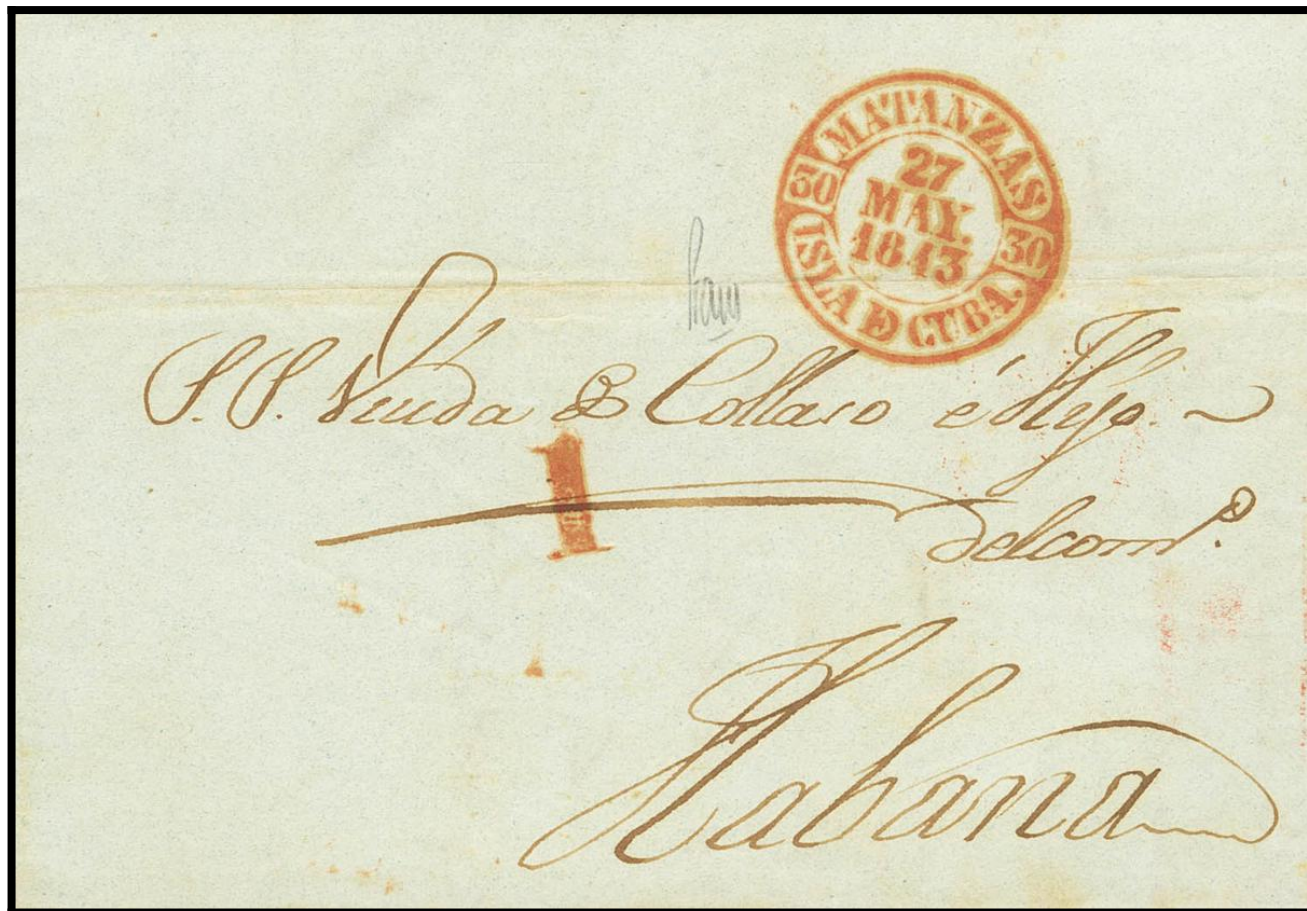 MATANZAS
30 30
27
MAY.
1843
ISLA DE CUBA.
S.S. Viuda de Collaso é Hijo.
1
delcomº.
Habana